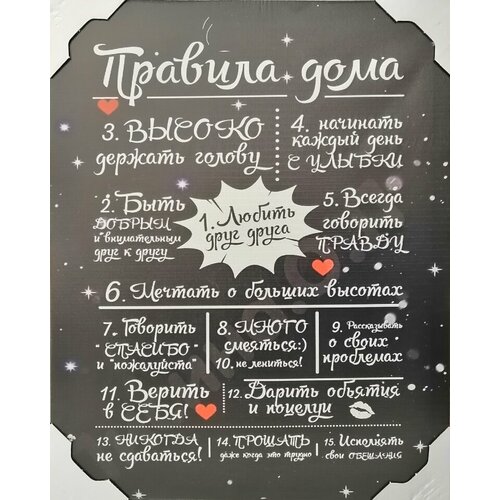 Правила дома
3. ВЫСОКО
держать голову
4. начинать
каждый день
С УЛЫБКИ
2. Быть
ДОБРЫМ
и внимательным
друг к другу
1. Любить
друг друга
5. Всегда
говорить
ПРАВДУ
6. Мечтать о больших высотах
7. Говорить
"СПАСИБО"
и "пожалуйста"
8. МНОГО
смеяться:)
10. не лениться!
9. Рассказывать
о своих
проблемах
11. Верить
в СЕБЯ!
12. Дарить объятия
и поцелуи
13. НИКОГДА
не сдаваться!
14. ПРОЩАТЬ
даже когда это трудно
15. Исполнять
свои ОБЕЩАНИЯ